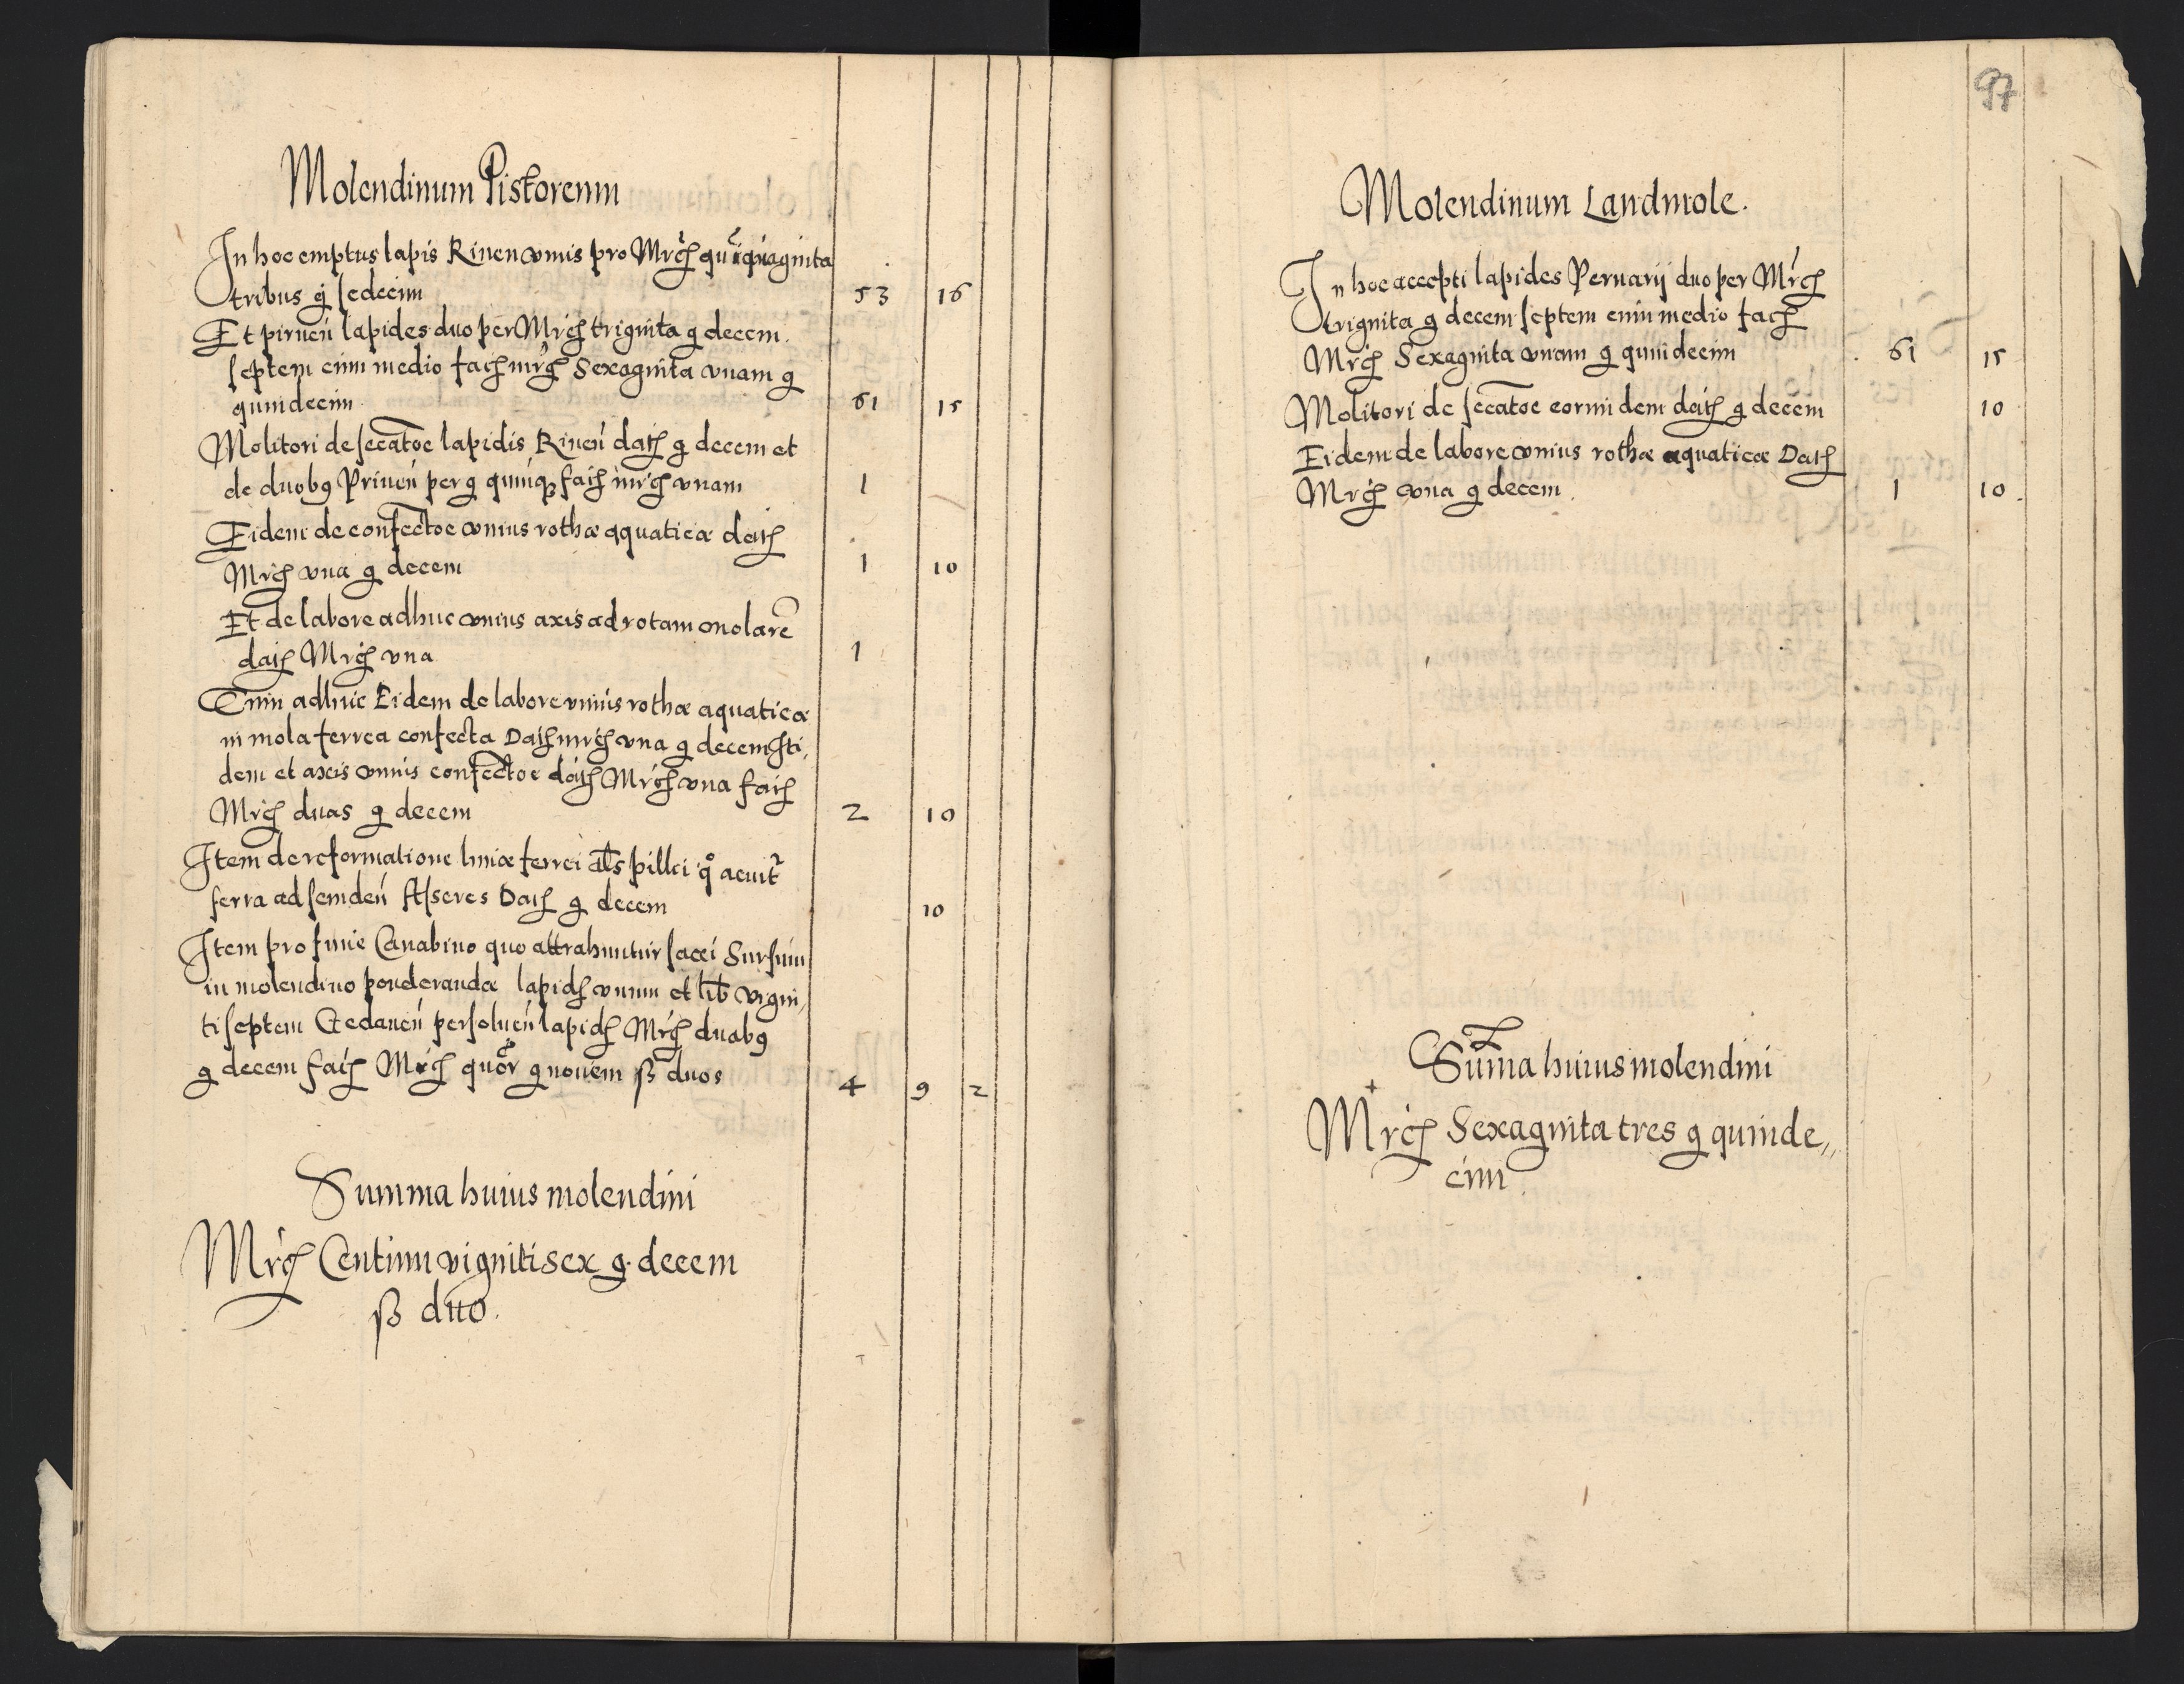 Molendinum Pistorenm
In hoc emptus lapis Rinen vnus pro Mrcħ quīquaginta
tribus g̃ sedecim 53 16
Et pirneń lapides duo per Mrcħ triginta g decem
septem cum medio facħ mrcħ Sexaginta vnam g
quindecim 61 15
Molitori de secatoe lapidis Rineń datħ g decem et
de duobꝯ Prineń per g quinqꝫ facħ mrcħ vnam 1
Eidem de confectoe vnius rothæ aquaticæ datħ
Mrcħ vna g decem 1 10
Et de labore adhuc vnius axis ad rotam molarē
datħ Mrcħ vna 1
adhuc Eidem de labore vnius rothæ aquaticæ
in mola ferrea confecta Datħ mrcħ vna g decem Iti,
dem et axis vnius confectoe datħ Mrcħ vna facħ
Mrcħ duas g decem 2 10
Item de reformatione limæ ferrei als pillei qͦ acuit᷑
serra ad Asseres Datħ g decem 10
Item pro fune Canabino quo attrahuntur sacci Sursum
in molendino ponderandæ lapidħ vnum et lib vigin,
ti septem persolueń lapidħ Mrcħ duabꝯ
g decem facħ Mrcħ quōr g nouem ß duos 4 9 2
Summa huius molendini
Mrcħ Centum vigintisex g. decem
ß duo.
97
Molendinum Landmole.
In hoc accepti lapides Pernarij duo per Mrcħ
triginta g decem septem cum medio facħ
Mrcħ Sexaginta vnam g quindecim 61 15
Molitori de secatoe eorundem datħ g decem 10
Eidem de labore vnius rothæ aquaticæ Datħ
Mrcħ vna g decem. 1 10
Suma huius molendini
Mrcħ Sexaginta tres g quinde,,
cim